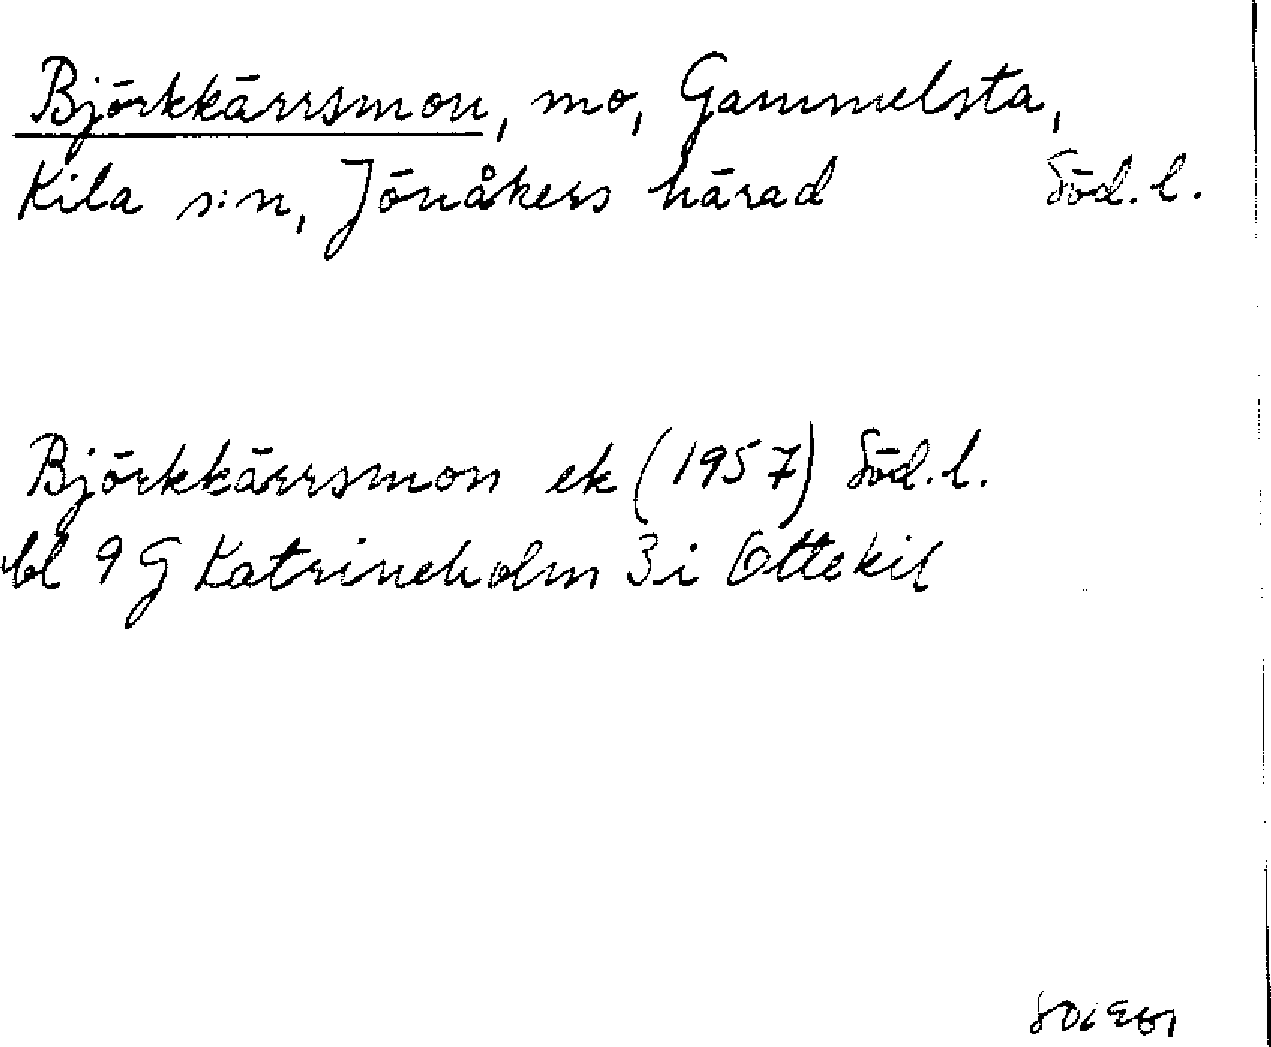 Björkkärrsmon, mo, Gammelsta,
Kila s:n, Jönåkers härad Söd. l.
Björkkärrsmon ek (1957) Söd. l.
bl 9 G Katrineholm 3 i Ottekil